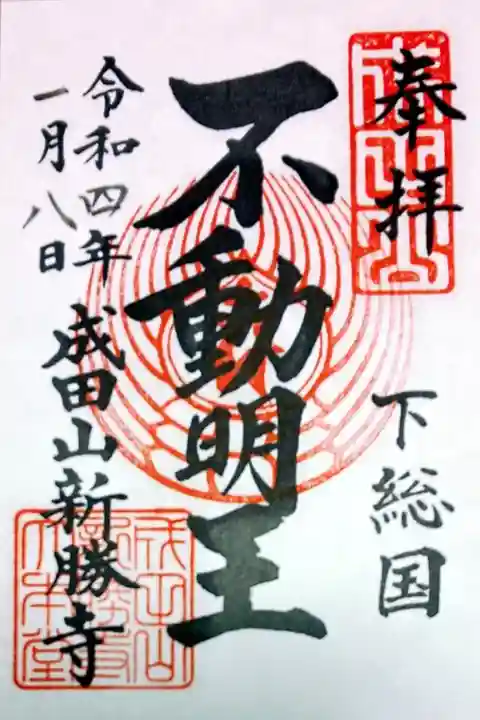 奉拝
下総国
不動明王
令和四年
一月八日
成田山新勝寺
成田山